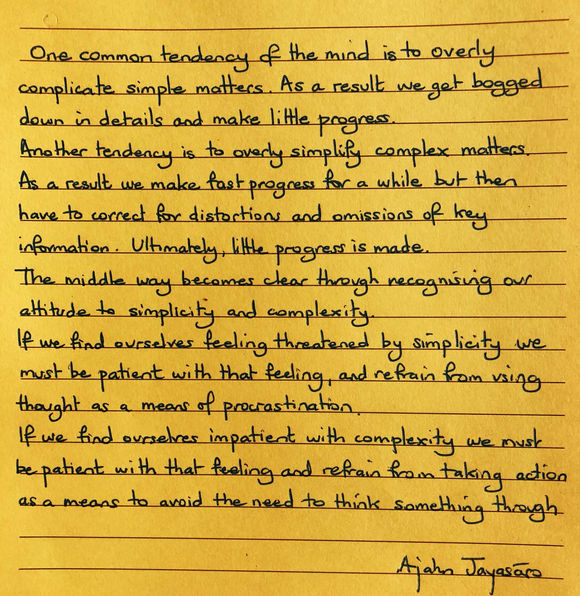 One common tendency of the mind is to overly
complicate simple matters. As a result we get bogged
down in details and make little progress.
Another tendency is to overly simplify complex matters.
As a result we make fast progress for a while but then
have to correct for distortions and omissions of key
information. Ultimately, little progress is made.
The middle way becomes clear through recognising our
attitude to simplicity and complexity.
If we find ourselves feeling threatened by simplicity we
must be patient with that feeling, and refrain from using
thought as a means of procrastination.
If we find ourselves impatient with complexity we must
be patient with that feeling and refrain from taking action
as a means to avoid the need to think something through
Ajahn Jayasāro